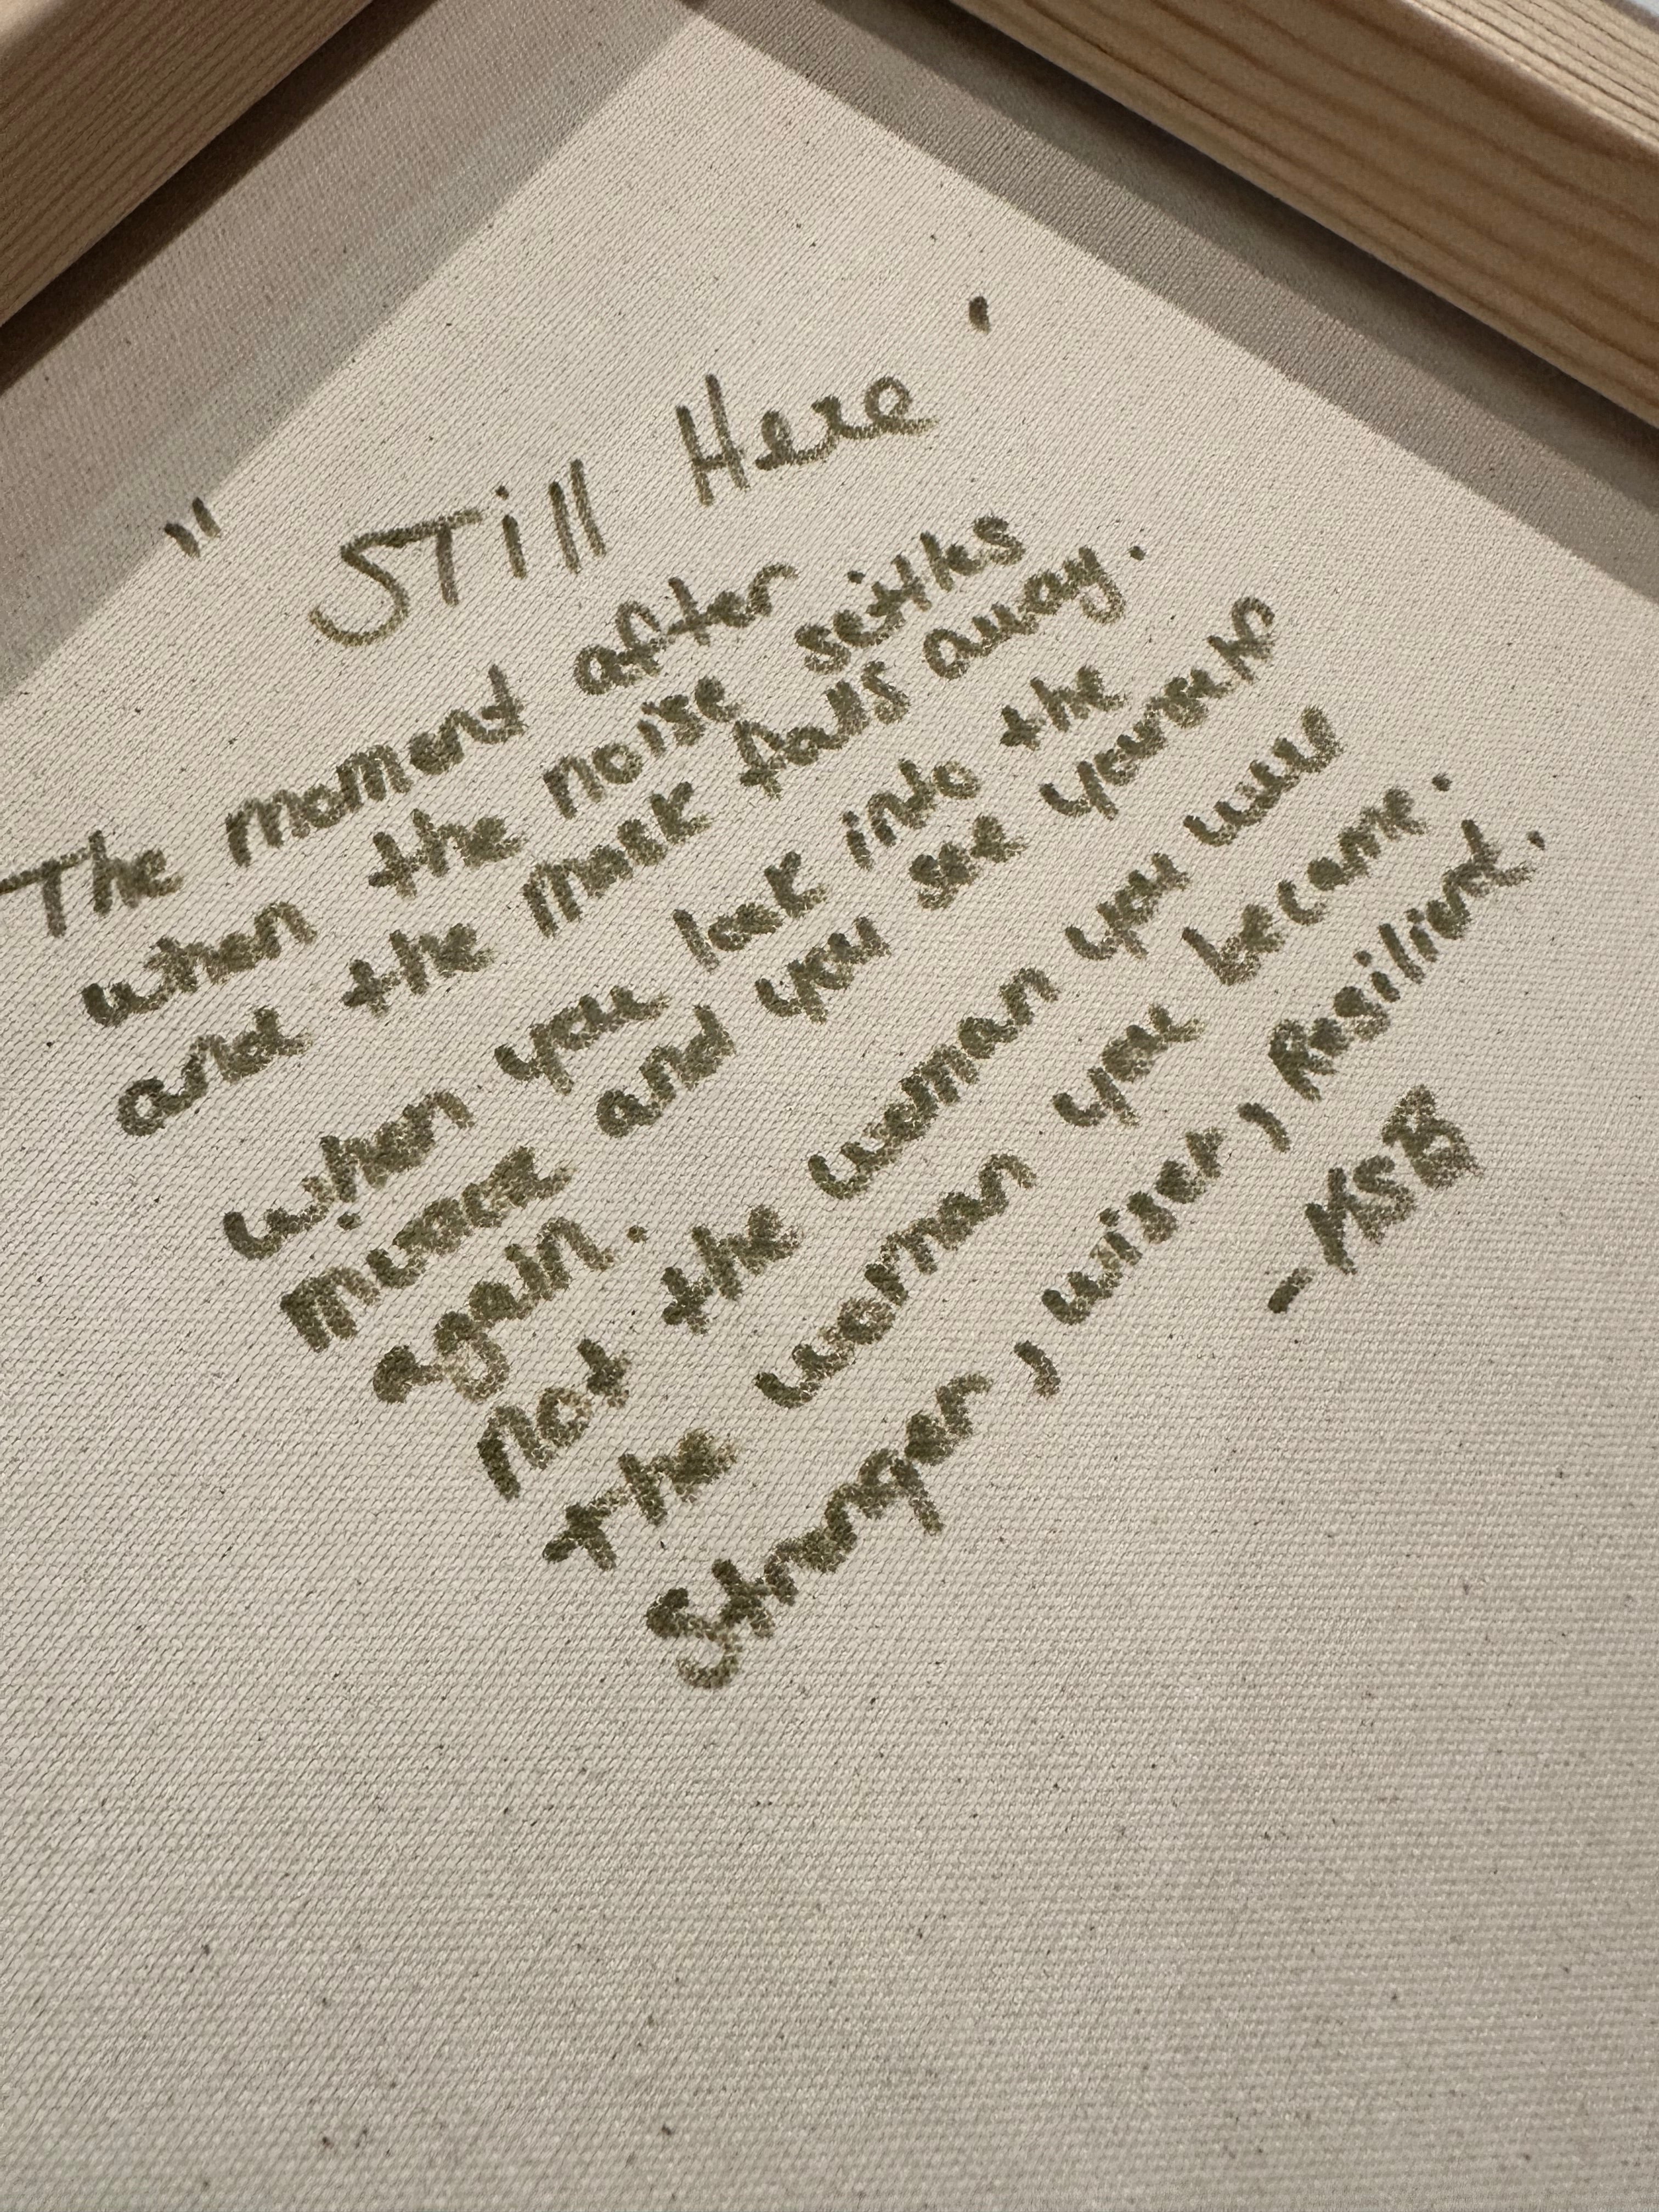 " Still Here '
The moment after
when the noise settles
and the mask falls away.
when you look into the
and you see yourself
again.
not the woman you
the woman you became.
Stronger, wiser, Resilient.